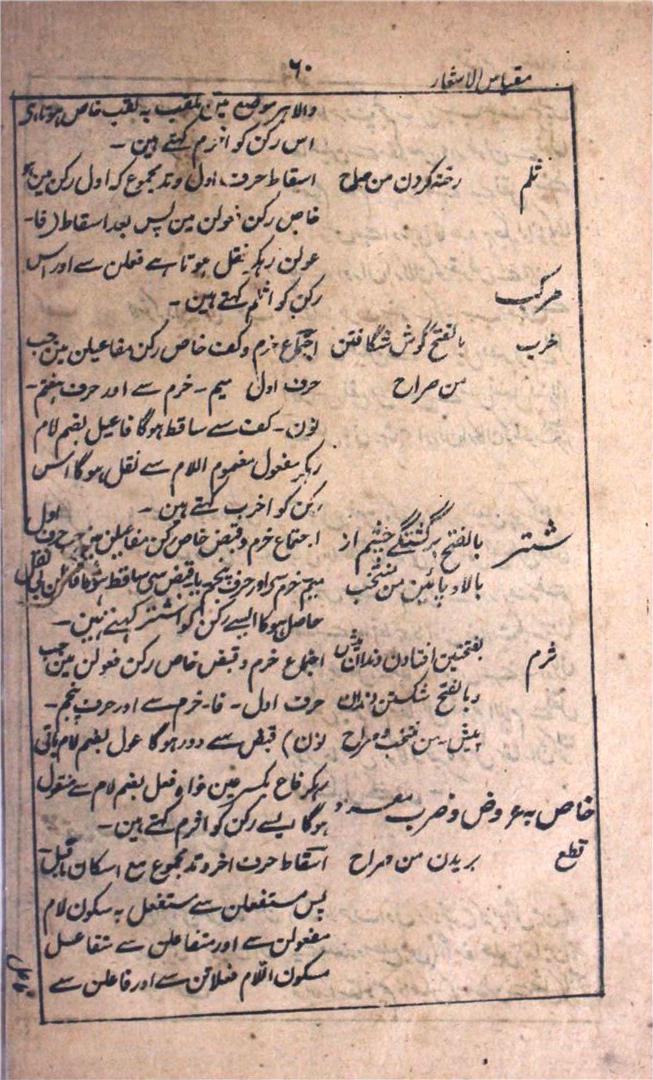 ۶۰
مقیاس الاشعار
والا ہر موضع مین ملقب بہ لقب خاص ہوتا ہی
اس رکن کو اخرم کہتے ہین ۔
ثلم رخنہ کردن من صراح اسقاط حرف اول وتد مجموع کہ اول رکن مین ہو
خاص رکن فعولن مین پس بعد اسقاط (فا۔
عولن رہکر نقل ہوتا ہے فعلن سے اور اس
مرکب رکن کو اثلم کہتے ہین ۔
خرب بالفتح گوش شگافتن اجتماع خرم وکف خاص رکن مفاعیلن مین جب
من صراح حرف اول میم ۔ خرم سے اور حرف ہفتم ۔
نون ۔ کف سے ساقط ہوگا فاعیل بضم لام
رہکر مفعول مضموم اللام سے نقل ہوگا اس
رکن کو اخرب کہتے ہین ۔
شتر بالفتح برگشتگے چشم از اجتماع خرم وقبض خاص رکن مفاعیلن مین جب حرف اول
بالا و پائین من منتخب میم خرم سے اور حرف پنجم یا قبض سی ساقط ہوگا فاعلن
حاصل ہوگا ایسے رکن کو اشتر کہتے ہین ۔
ثرم بفتحتین افتادن دندان پیش اجتماع خرم و قبض خاص رکن فعولن مین جب
و بالفتح شکستن دندان حرف اول ۔ فا ۔ خرم سے اور حرف پنجم ۔
پیش ۔ من منتخب و صراح نون) قبض سے دور ہوگا عول بضم لام باقی
رہکر فاع بکسر عین خواہ فعل بضم لام سے منقول
ہوگا ایسے رکن کو اثرم کہتے ہین ۔
خاص بہ عروض و ضرب مفرد
قطع بریدن من صراح اسقاط حرف آخر وتد مجموع مع اسکان ماقبل
پس مستفعلن سے مستفعل بہ سکون لام
مفعولن سے اور متفاعلن سے متفاعل
بسکون اللام فعلاتن سے اور فاعلن سے